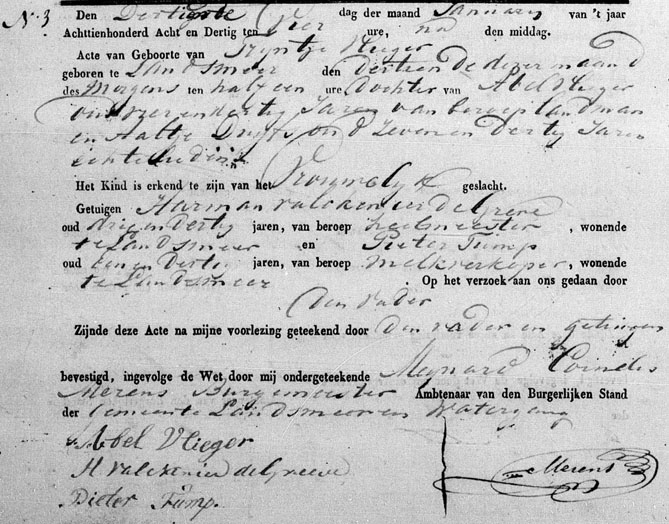 N. 3 Den Dertiende dag der maand January van 't jaar
Achttienhonderd Acht en Dertig ten vier ure, na den middag.
Acte van Geboorte van Trijntje Vlieger
geboren te Landsmeer den dertiende dezer maand
des Morgens ten half een ure dochter van Abel Vlieger
oud vier en dertig Jaren van beroep landman
en Aaltje oud Zeven en Dertig Jaren
echtelieden
Het Kind is erkend te zijn van het Vrouwelijk geslacht.
Getuigen Harman valckenier de Greeve
oud drie en dertig jaren, van beroep heelmeester, wonende
te Landsmeer en Pieter Tump
oud een en dertig jaren, van beroep melkverkoper, wonende
te Landsmeer Op het verzoek aan ons gedaan door
den vader
Zijnde deze Acte na mijne voorlezing geteekend door den vader en getuigen
bevestigd, ingevolge de Wet door mij ondergeteekende Meynard Cornelis
Merens Burgemeester Ambtenaar van den Burgerlijken Stand
der Gemeente Landsmeer en Watergang
Abel Vlieger
H valckenier de Greeve
Pieter Tump.
Merens